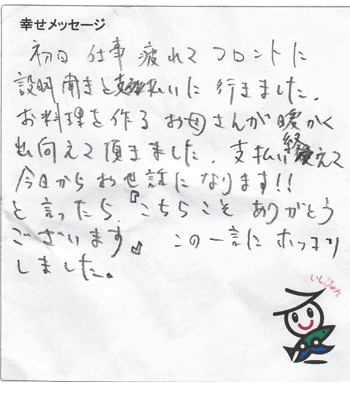 幸せメッセージ
初日 仕事 疲れて フロントに
説明聞きと支払いに 行きました.
お料理を作る お母さんが暖かく
出向えて頂きました. 支払い終えて
今日からお世話になります!!
と言ったら『こちらこそ ありがとう
ございます』 この一言に ホッコリ
しました。